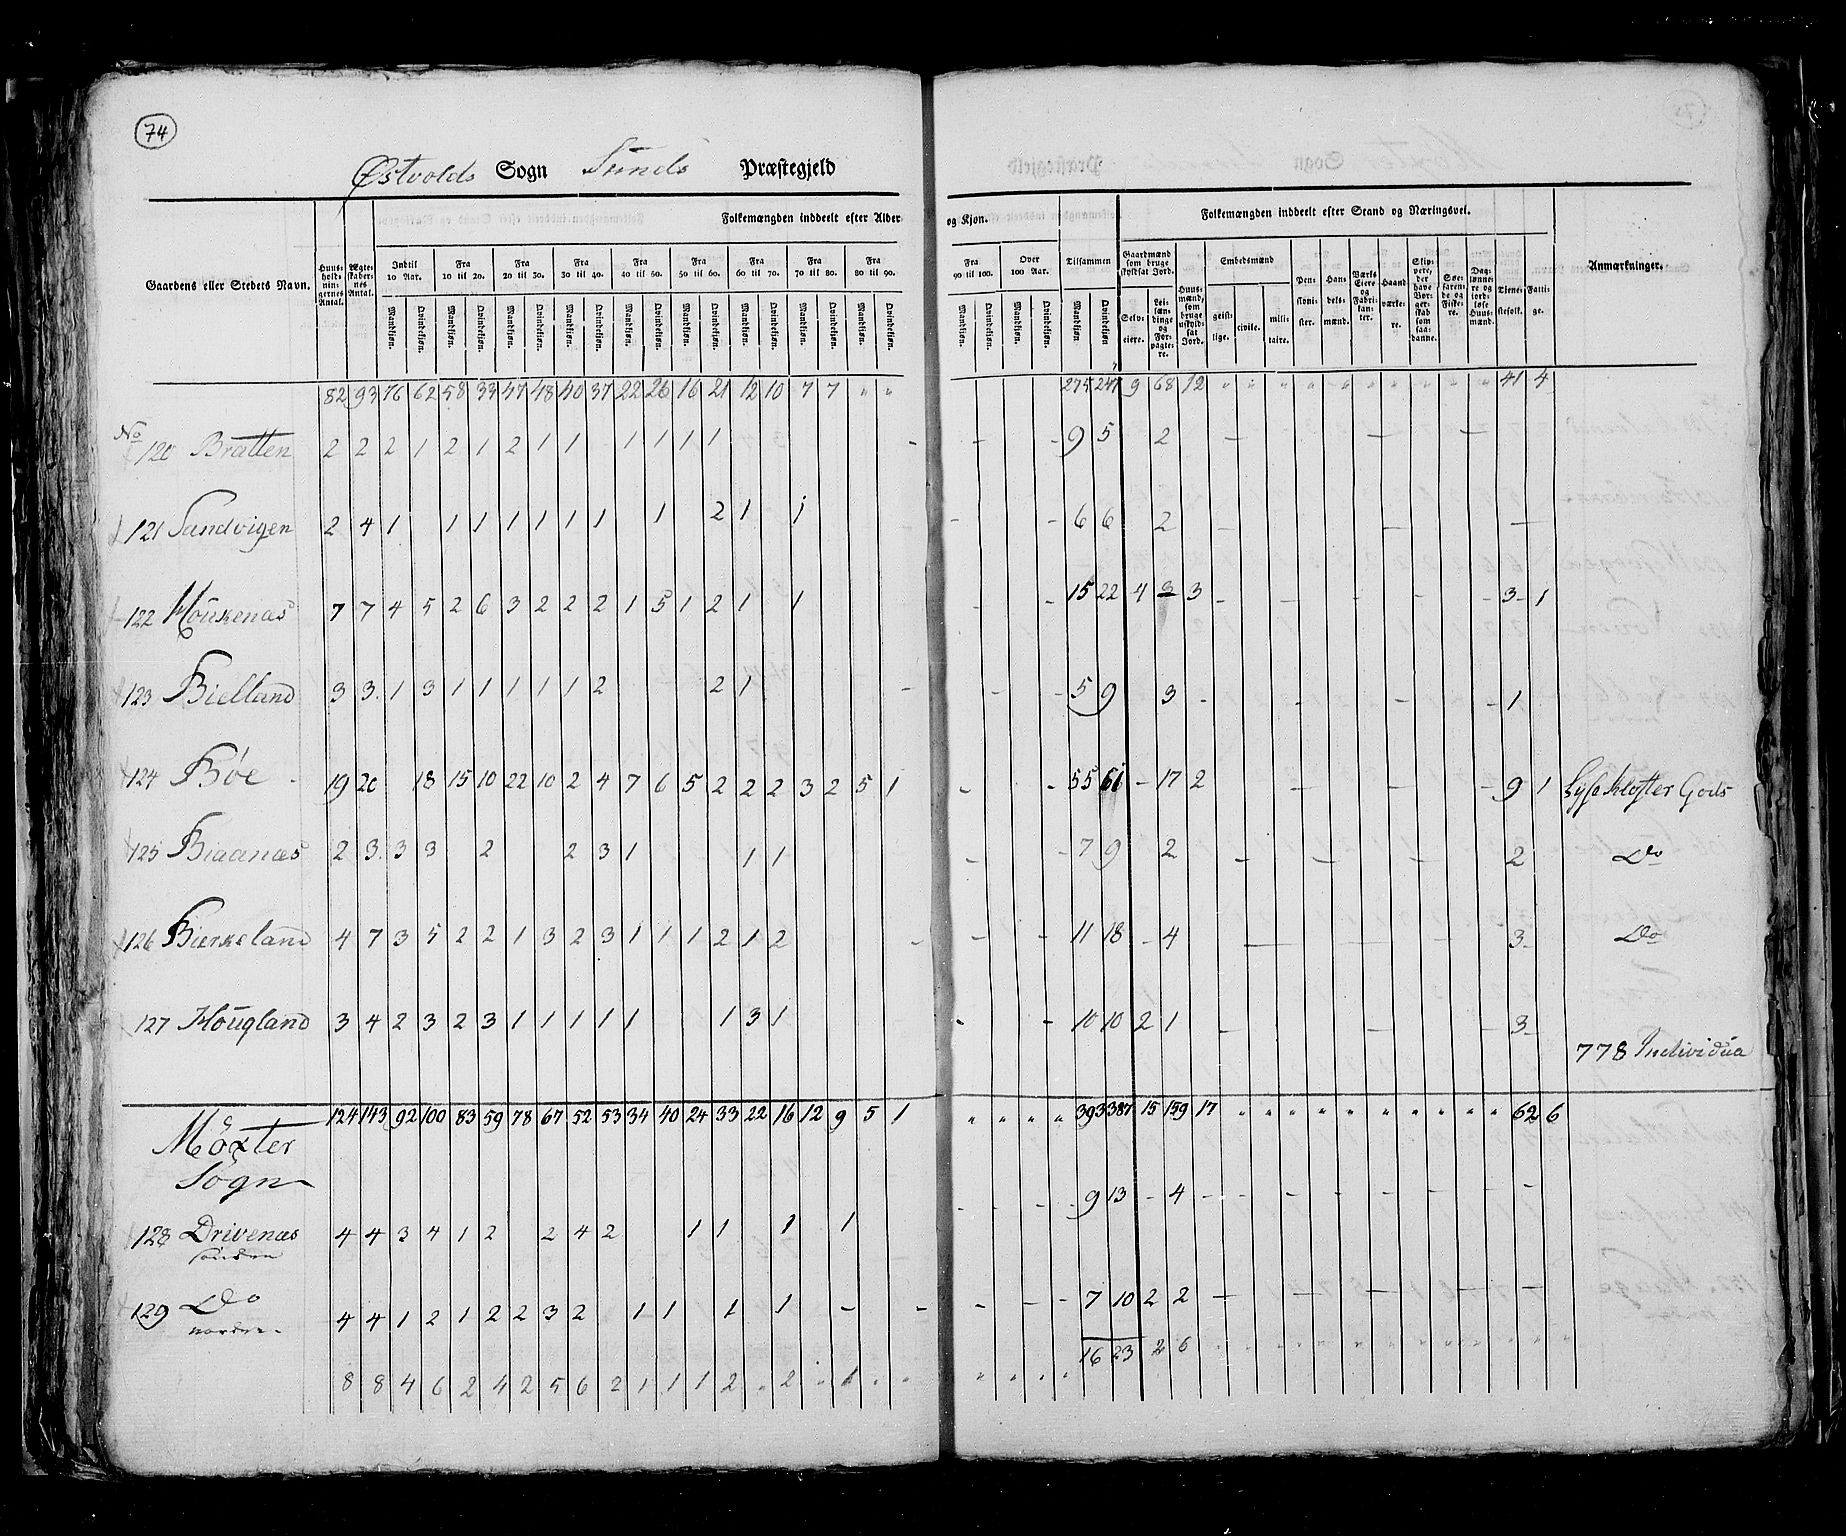 74
Østvolds Sogn Sunds Præstegjeld
Gaardens eller Stedets Navn.
Huus-holdnin-gernes Antal.
Ægte-skaber-nes Antal.
Folkemængden inddeelt efter Alder og Kjøn.
Indtil 10 Aar. Fra 10 til 20. Fra 20 til 30. Fra 30 til 40. Fra 40 til 50. Fra 50 til 60. Fra 60 til 70. Fra 70 til 80. Fra 80 til 90. Fra 90 til 100. Over 100 Aar. Tilsammen
Mandkjøn. Qvindekjøn. Mandkjøn. Qvindekjøn. Mandkjøn. Qvindekjøn. Mandkjøn. Qvindekjøn. Mandkjøn. Qvindekjøn. Mandkjøn. Qvindekjøn. Mandkjøn. Qvindekjøn. Mandkjøn. Qvindekjøn. Mandkjøn. Qvindekjøn. Mandkjøn. Qvindekjøn. Mandkjøn. Qvindekjøn. Mandkjøn. Qvindekjøn
Folkemængden inddeelt efter Stand og Næringsvei.
Gaardmænd som bruge skyldsat Jord.
Selv-eiere.
Lei-læn-dinge og For-pagte-re.
Huus-mænd, som bruge uskyld-sat Jord.
Embedsmænd
geist-lige. civile. mili-taire.
Pen-sioni-ster.
Han-dels-mænd.
Værks Eiere og Fabri-kan-ter.
Haand værke-re.
Søe-faren-de og Fiske-re.
Dag-lønne-re og jord-løse Huus-mænd.
Tjene-stefolk.
Fatti-ge.
Anmærkninger.
82 93 76 62 58 33 47 48 40 37 22 26 16 21 12 10 7 7 " " 275 247 9 68 12 " " " " " " " " " " 41 4
No 120 Bratten 2 2 2 1 2 1 2 1 1 1 1 1 1 - - - 9 5 2 - - -
121 Sandvigen 2 4 1 1 1 1 1 1 1 1 2 1 1 - - 6 6 2 - - -
122 Houkenæs 7 7 4 5 2 6 3 2 2 2 1 5 1 2 1 1 - - 15 22 4 3 3 - - - - - 3 1
123 Bielland 3 3 1 3 1 1 1 1 1 2 2 1 - - - 5 9 3 - - - - 1
124 Bøe 19 20 18 15 10 22 10 2 4 7 6 5 2 2 2 3 2 5 1 - - 55 61 - 17 2 - - - 9 1 Lyse Kloster Gods
125 Biaanæs 2 3 3 3 2 2 3 1 1 1 - - 7 9 2 - - - 2 Do
126 Bierkeland 4 7 3 5 2 2 1 3 2 3 1 1 1 2 1 2 - - - 11 18 - 4 - - - 3 Do
127 Hougland 3 4 2 3 2 3 1 1 1 1 1 1 3 1 - - 10 10 2 1 - - - 3
778 Individua
124 143 92 100 83 59 78 67 52 53 34 40 24 33 22 16 12 9 5 1 " " " " 393 387 15 159 17 " " " " " " " " " " 62 6
Møxter
Sogn
128 Drivenæs 4 4 3 4 1 2 2 4 2 1 1 1 1 - - - 9 13 - 4 - - - - - - -
søndre
129 Do 4 4 1 2 1 2 2 3 2 1 1 1 1 - - - - - 7 10 2 2 - - - - -
nordre
16 23 2 6 " " " " " " " " " " " "
8 8 4 6 2 4 2 5 6 2 1 1 1 2 " 2 " 1 " " " " " "